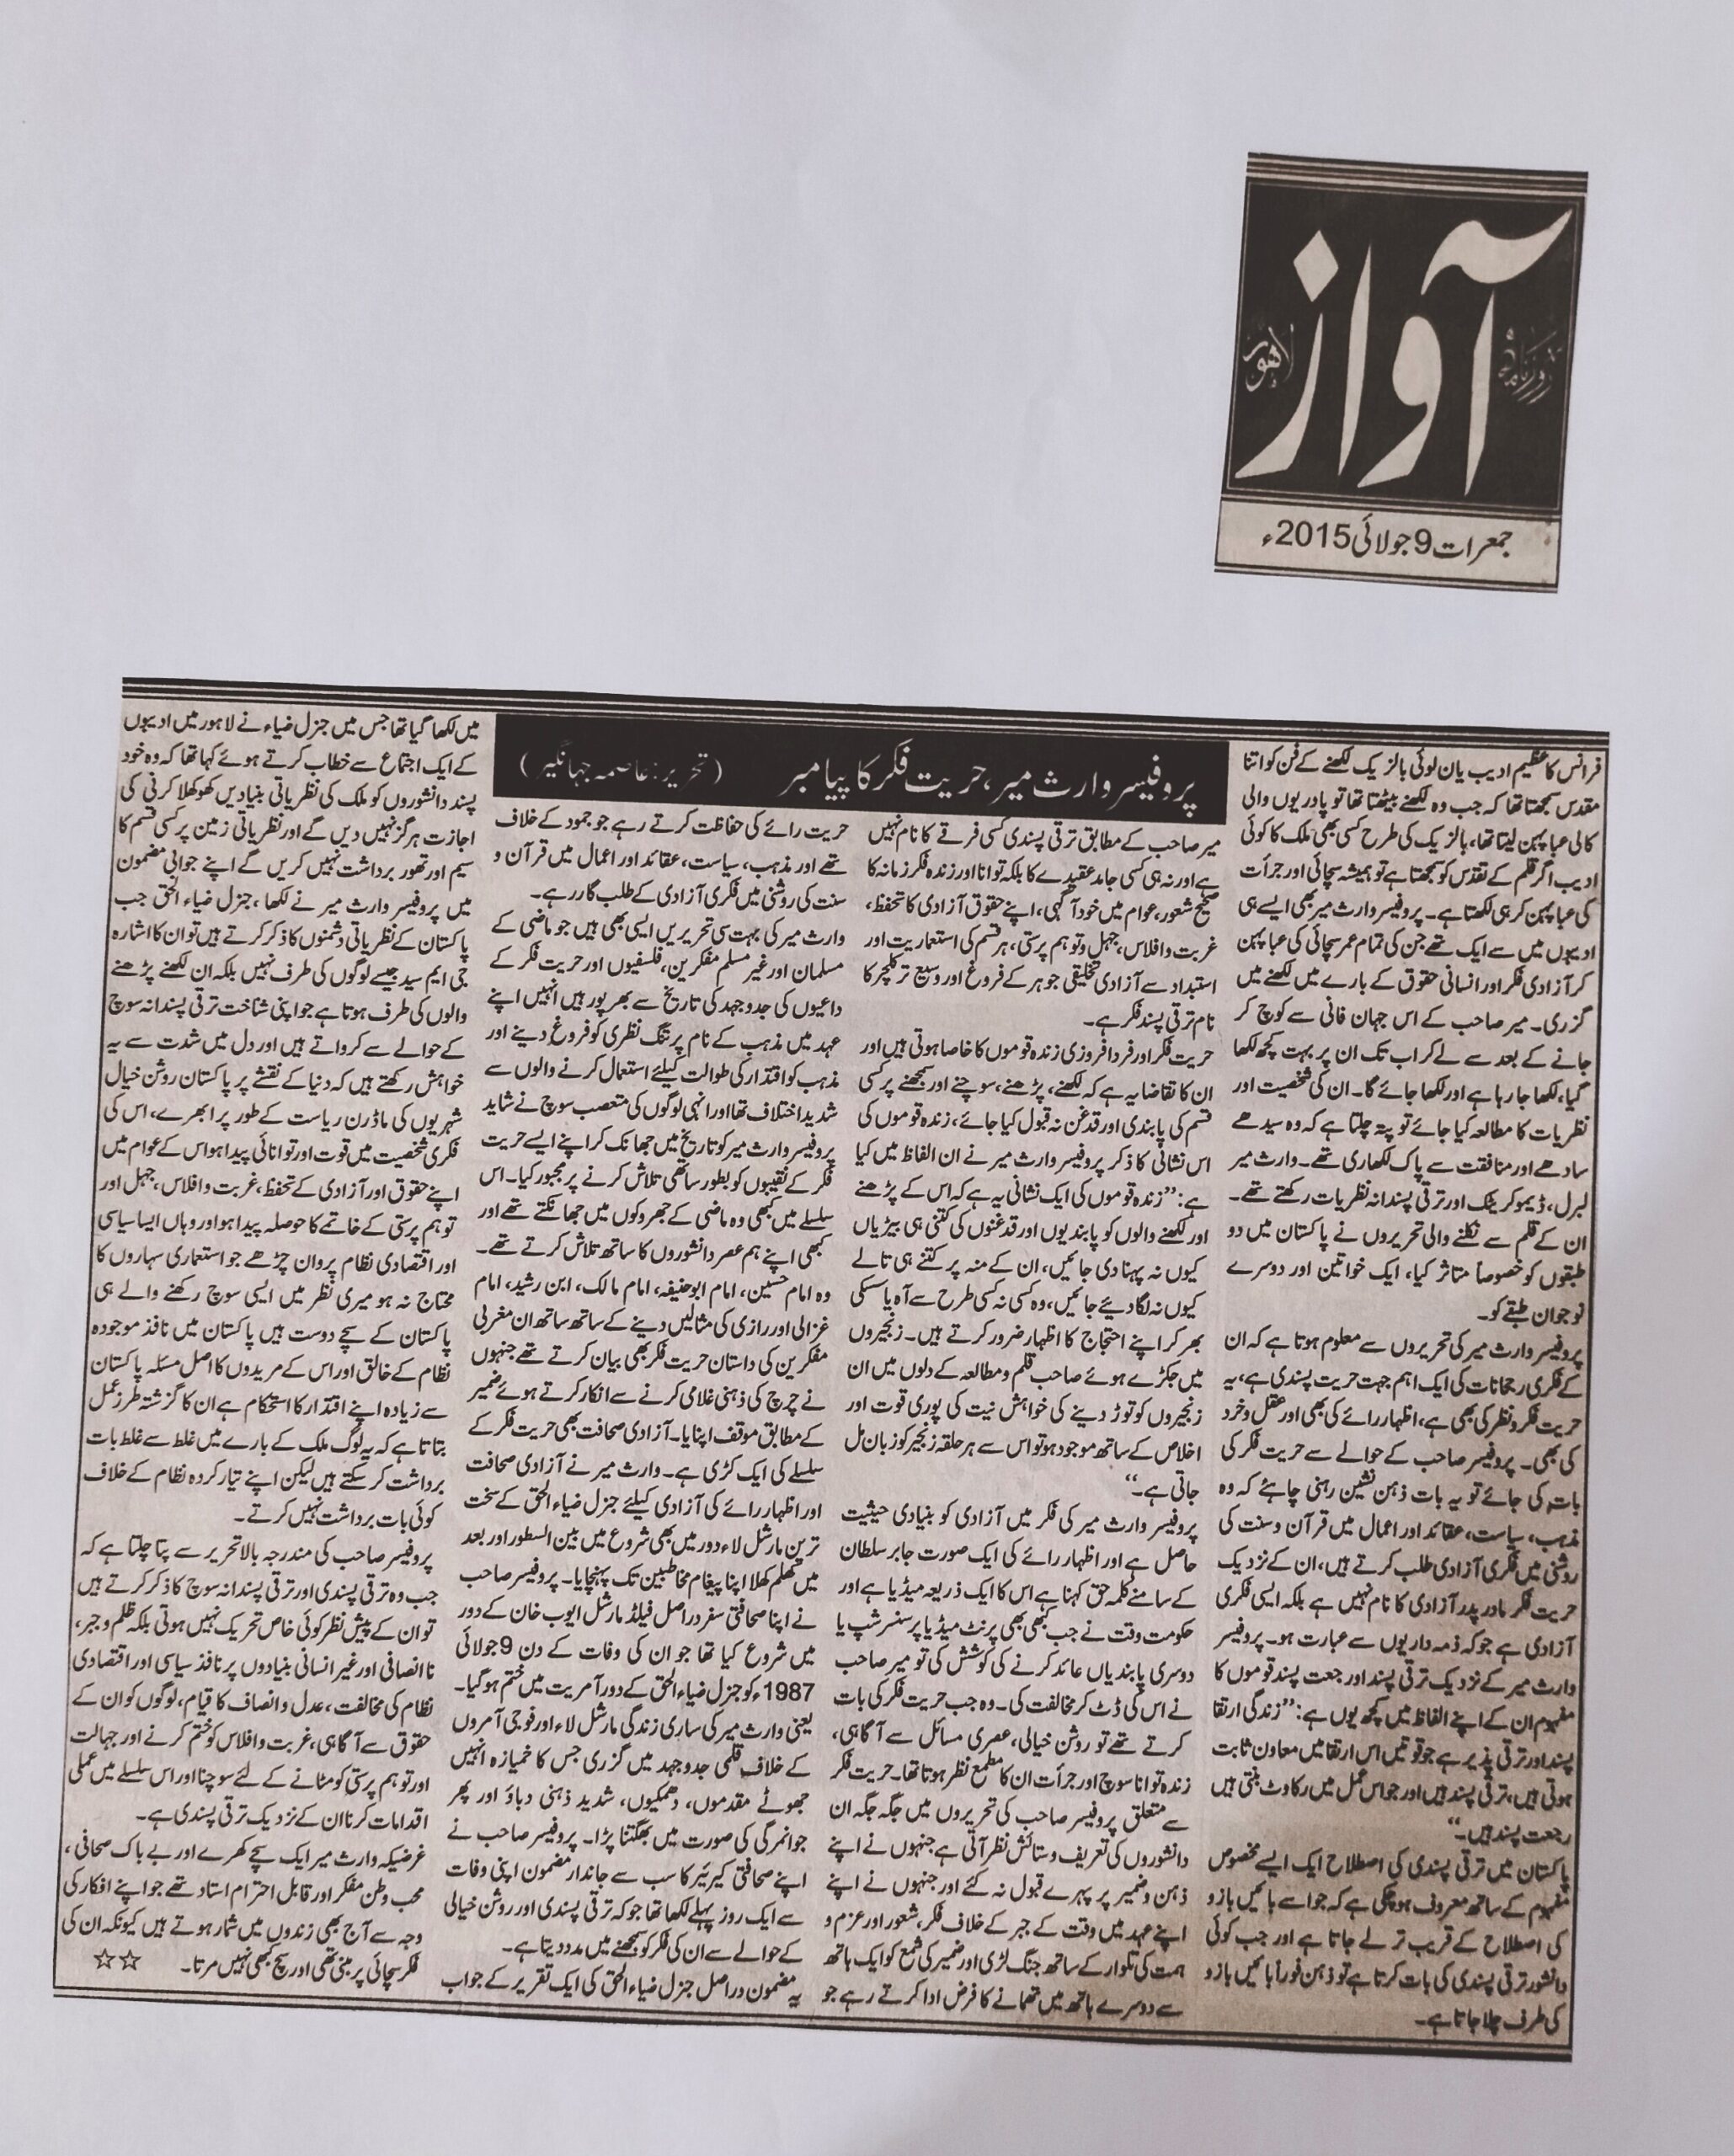 روزنامہ
آواز
لاہور
جمعرات 9 جولائی 2015ء
پروفیسر وارث میر، حریت فکر کا پیامبر (تحریر: عاصمہ جہانگیر)
فرانس کا عظیم ادیب یان لوئی بالزیک لکھنے کے فن کو اتنا
مقدس سمجھتا تھا کہ جب وہ لکھنے بیٹھتا تھا تو پادریوں والی
کالی عبا پہن لیتا تھا، بالزیک کی طرح کسی بھی ملک کا کوئی
ادیب اگر قلم کے تقدس کو سمجھتا ہے تو ہمیشہ سچائی اور جرأت
کی عبا پہن کر ہی لکھتا ہے۔ پروفیسر وارث میر بھی ایسے ہی
ادیبوں میں سے ایک تھے جن کی تمام عمر سچائی کی عبا پہن
کر آزادی فکر اور انسانی حقوق کے بارے میں لکھنے میں
گزری۔ میر صاحب کے اس جہان فانی سے کوچ کر
جانے کے بعد سے لے کر اب تک ان پر بہت کچھ لکھا
گیا، لکھا جا رہا ہے اور لکھا جائے گا۔ ان کی شخصیت اور
نظریات کا مطالعہ کیا جائے تو پتہ چلتا ہے کہ وہ سیدھے
سادھے اور منافقت سے پاک لکھاری تھے۔ وارث میر
لبرل، ڈیموکریٹک اور ترقی پسندانہ نظریات رکھتے تھے۔
ان کے قلم سے نکلنے والی تحریروں نے پاکستان میں دو
طبقوں کو خصوصاً متاثر کیا، ایک خواتین اور دوسرے
نوجوان طبقے کو۔
پروفیسر وارث میر کی تحریروں سے معلوم ہوتا ہے کہ ان
کے فکری رجحانات کی ایک اہم جہت حریت پسندی ہے، یہ
حریت فکر و نظر کی بھی ہے، اظہار رائے کی بھی اور عقل و خرد
کی بھی۔ پروفیسر صاحب کے حوالے سے حریت فکر کی
بات کی جائے تو یہ بات ذہن نشین رہنی چاہئے کہ وہ
مذہب، سیاست، عقائد اور اعمال میں قرآن و سنت کی
روشنی میں فکری آزادی طلب کرتے ہیں، ان کے نزدیک
حریت فکر مادر پدر آزادی کا نام نہیں ہے بلکہ ایسی فکری
آزادی ہے جو کہ ذمہ داریوں سے عبارت ہو۔ پروفیسر
وارث میر کے نزدیک ترقی پسند اور رجعت پسند قوموں کا
مفہوم ان کے اپنے الفاظ میں کچھ یوں ہے: ”زندگی ارتقا
پسند اور ترقی پذیر ہے جو قوتیں اس ارتقا میں معاون ثابت
ہوتی ہیں، ترقی پسند ہیں اور جو اس عمل میں رکاوٹ بنتی ہیں
رجعت پسند ہیں۔“
پاکستان میں ترقی پسندی کی اصطلاح ایک ایسے مخصوص
مفہوم کے ساتھ معروف ہو چکی ہے کہ جو اسے بائیں بازو
کی اصطلاح کے قریب تر لے جاتا ہے اور جب کوئی
دانشور ترقی پسندی کی بات کرتا ہے تو ذہن فوراً بائیں بازو
کی طرف چلا جاتا ہے۔
میر صاحب کے مطابق ترقی پسندی کسی فرقے کا نام نہیں
ہے اور نہ ہی کسی جامد عقیدے کا بلکہ توانا اور زندہ فکر زمانہ کا
صحیح شعور، عوام میں خود آگہی، اپنے حقوق آزادی کا تحفظ،
غربت و افلاس، جہل و توہم پرستی، ہر قسم کی استعماریت اور
استبداد سے آزادی تخلیقی جوہر کے فروغ اور وسیع تر کلچر کا
نام ترقی پسند فکر ہے۔
حریت فکر اور فردا فروزی زندہ قوموں کا خاصا ہوتی ہیں اور
ان کا تقاضا یہ ہے کہ لکھنے، پڑھنے، سوچنے اور سمجھنے پر کسی
قسم کی پابندی اور قدغن نہ قبول کیا جائے، زندہ قوموں کی
اس نشانی کا ذکر پروفیسر وارث میر نے ان الفاظ میں کیا
ہے: ”زندہ قوموں کی ایک نشانی یہ ہے کہ اس کے پڑھنے
اور لکھنے والوں کو پابندیوں اور قدغنوں کی کتنی ہی بیڑیاں
کیوں نہ پہنا دی جائیں، ان کے منہ پر کتنے ہی تالے
کیوں نہ لگا دیئے جائیں، وہ کسی نہ کسی طرح سے آہ یا سسکی
بھر کر اپنے احتجاج کا اظہار ضرور کرتے ہیں۔ زنجیروں
میں جکڑے ہوئے صاحب قلم و مطالعہ کے دلوں میں ان
زنجیروں کو توڑ دینے کی خواہش نیت کی پوری قوت اور
اخلاص کے ساتھ موجود ہو تو اس سے ہر حلقہ زنجیر کو زبان مل
جاتی ہے۔“
پروفیسر وارث میر کی فکر میں آزادی کو بنیادی حیثیت
حاصل ہے اور اظہار رائے کی ایک صورت جابر سلطان
کے سامنے کلمہ حق کہنا ہے اس کا ایک ذریعہ میڈیا ہے اور
حکومت وقت نے جب کبھی بھی پرنٹ میڈیا پر سنسر شپ یا
دوسری پابندیاں عائد کرنے کی کوشش کی تو میر صاحب
نے اس کی ڈٹ کر مخالفت کی۔ وہ جب حریت فکر کی بات
کرتے تھے تو روشن خیالی، عصری مسائل سے آگاہی،
زندہ توانا سوچ اور جرأت ان کا مطمع نظر ہوتا تھا۔ حریت فکر
سے متعلق پروفیسر صاحب کی تحریروں میں جگہ جگہ ان
دانشوروں کی تعریف و ستائش نظر آتی ہے جنہوں نے اپنے
ذہن و ضمیر پر پہرے قبول نہ کئے اور جنہوں نے اپنے
اپنے عہد میں وقت کے جبر کے خلاف فکر، شعور اور عزم و
ہمت کی تلوار کے ساتھ جنگ لڑی اور ضمیر کی شمع کو ایک ہاتھ
سے دوسرے ہاتھ میں تھمانے کا فرض ادا کرتے رہے جو
حریت رائے کی حفاظت کرتے رہے جو جمود کے خلاف
تھے اور مذہب، سیاست، عقائد اور اعمال میں قرآن و
سنت کی روشنی میں فکری آزادی کے طلب گار رہے۔
وارث میر کی بہت سی تحریریں ایسی بھی ہیں جو ماضی کے
مسلمان اور غیر مسلم مفکرین، فلسفیوں اور حریت فکر کے
داعیوں کی جدوجہد کی تاریخ سے بھرپور ہیں انہیں اپنے
عہد میں مذہب کے نام پر تنگ نظری کو فروغ دینے اور
مذہب کو اقتدار کی طوالت کیلئے استعمال کرنے والوں سے
شدید اختلاف تھا اور انہی لوگوں کی متعصب سوچ نے شاید
پروفیسر وارث میر کو تاریخ میں جھانک کر اپنے ایسے حریت
فکر کے نقیبوں کو بطور ساتھی تلاش کرنے پر مجبور کیا۔ اس
سلسلے میں کبھی وہ ماضی کے جھروکوں میں جھانکتے تھے اور
کبھی اپنے ہم عصر دانشوروں کا ساتھ تلاش کرتے تھے۔
وہ امام حسین، امام ابو حنیفہ، امام مالک، ابن رشید، امام
غزالی اور رازی کی مثالیں دینے کے ساتھ ساتھ ان مغربی
مفکرین کی داستان حریت فکر بھی بیان کرتے تھے جنہوں
نے چرچ کی ذہنی غلامی کرنے سے انکار کرتے ہوئے ضمیر
کے مطابق موقف اپنایا۔ آزادی صحافت بھی حریت فکر کے
سلسلے کی ایک کڑی ہے۔ وارث میر نے آزادی صحافت
اور اظہار رائے کی آزادی کیلئے جنرل ضیاء الحق کے سخت
ترین مارشل لاء دور میں بھی شروع میں بین السطور اور بعد
میں کھلم کھلا اپنا پیغام مخاطبین تک پہنچایا۔ پروفیسر صاحب
نے اپنا صحافتی سفر دراصل فیلڈ مارشل ایوب خان کے دور
میں شروع کیا تھا جو ان کی وفات کے دن 9 جولائی
1987ء کو جنرل ضیاء الحق کے دور آمریت میں ختم ہو گیا۔
یعنی وارث میر کی ساری زندگی مارشل لاء اور فوجی آمروں
کے خلاف قلمی جدوجہد میں گزری جس کا خمیازہ انہیں
جھوٹے مقدموں، دھمکیوں، شدید ذہنی دباؤ اور پھر
جوانمرگی کی صورت میں بھگتنا پڑا۔ پروفیسر صاحب نے
اپنے صحافتی کیریئر کا سب سے جاندار مضمون اپنی وفات
سے ایک روز پہلے لکھا تھا جو کہ ترقی پسندی اور روشن خیالی
کے حوالے سے ان کی فکر کو سمجھنے میں مدد دیتا ہے۔
یہ مضمون دراصل جنرل ضیاء الحق کی ایک تقریر کے جواب
میں لکھا گیا تھا جس میں جنرل ضیاء نے لاہور میں ادیبوں
کے ایک اجتماع سے خطاب کرتے ہوئے کہا تھا کہ وہ خود
پسند دانشوروں کو ملک کی نظریاتی بنیادیں کھوکھلا کرنی کی
اجازت ہرگز نہیں دیں گے اور نظریاتی زمین پر کسی قسم کا
سیم اور تھور برداشت نہیں کریں گے اپنے جوابی مضمون
میں پروفیسر وارث میر نے لکھا، جنرل ضیاء الحق جب
پاکستان کے نظریاتی دشمنوں کا ذکر کرتے ہیں تو ان کا اشارہ
جی ایم سید جیسے لوگوں کی طرف نہیں بلکہ ان لکھنے پڑھنے
والوں کی طرف ہوتا ہے جو اپنی شناخت ترقی پسندانہ سوچ
کے حوالے سے کرواتے ہیں اور دل میں شدت سے یہ
خواہش رکھتے ہیں کہ دنیا کے نقشے پر پاکستان روشن خیال
شہریوں کی ماڈرن ریاست کے طور پر ابھرے، اس کی
فکری شخصیت میں قوت اور توانائی پیدا ہو اس کے عوام میں
اپنے حقوق اور آزادی کے تحفظ، غربت و افلاس، جہل اور
توہم پرستی کے خاتمے کا حوصلہ پیدا ہو اور وہاں ایسا سیاسی
اور اقتصادی نظام پروان چڑھے جو استعماری سہاروں کا
محتاج نہ ہو میری نظر میں ایسی سوچ رکھنے والے ہی
پاکستان کے سچے دوست ہیں پاکستان میں نافذ موجودہ
نظام کے خالق اور اس کے مریدوں کا اصل مسئلہ پاکستان
سے زیادہ اپنے اقتدار کا استحکام ہے ان کا گزشتہ طرز عمل
بتاتا ہے کہ یہ لوگ ملک کے بارے میں غلط سے غلط بات
برداشت کر سکتے ہیں لیکن اپنے تیار کردہ نظام کے خلاف
کوئی بات برداشت نہیں کرتے۔
پروفیسر صاحب کی مندرجہ بالا تحریر سے پتا چلتا ہے کہ
جب وہ ترقی پسندی اور ترقی پسندانہ سوچ کا ذکر کرتے ہیں
تو ان کے پیش نظر کوئی خاص تحریک نہیں ہوتی بلکہ ظلم و جبر،
نا انصافی اور غیر انسانی بنیادوں پر نافذ سیاسی اور اقتصادی
نظام کی مخالفت، عدل و انصاف کا قیام، لوگوں کو ان کے
حقوق سے آگاہی، غربت و افلاس کو ختم کرنے اور جہالت
اور توہم پرستی کو مٹانے کے لئے سوچنا اور اس سلسلے میں عملی
اقدامات کرنا ان کے نزدیک ترقی پسندی ہے۔
غرضیکہ وارث میر ایک سچے کھرے اور بے باک صحافی،
محب وطن مفکر اور قابل احترام استاد تھے جو اپنے افکار کی
وجہ سے آج بھی زندوں میں شمار ہوتے ہیں کیونکہ ان کی
فکر سچائی پر مبنی تھی اور سچ کبھی نہیں مرتا۔ ☆☆